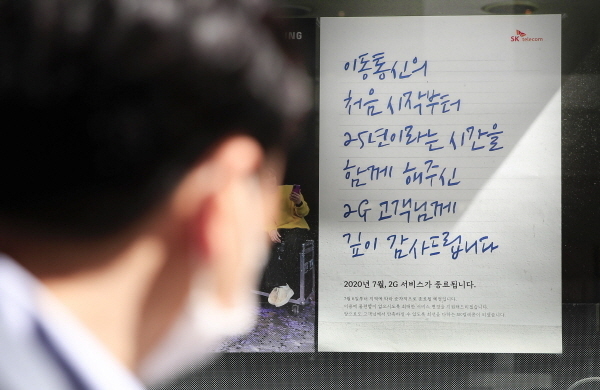 NG
SK telecom
이동통신의
처음 시작부터
25년이라는 시간을
함께 해주신
2G 고객님께
깊이 감사드립니다
2020년 7월, 2G 서비스가 종료됩니다.